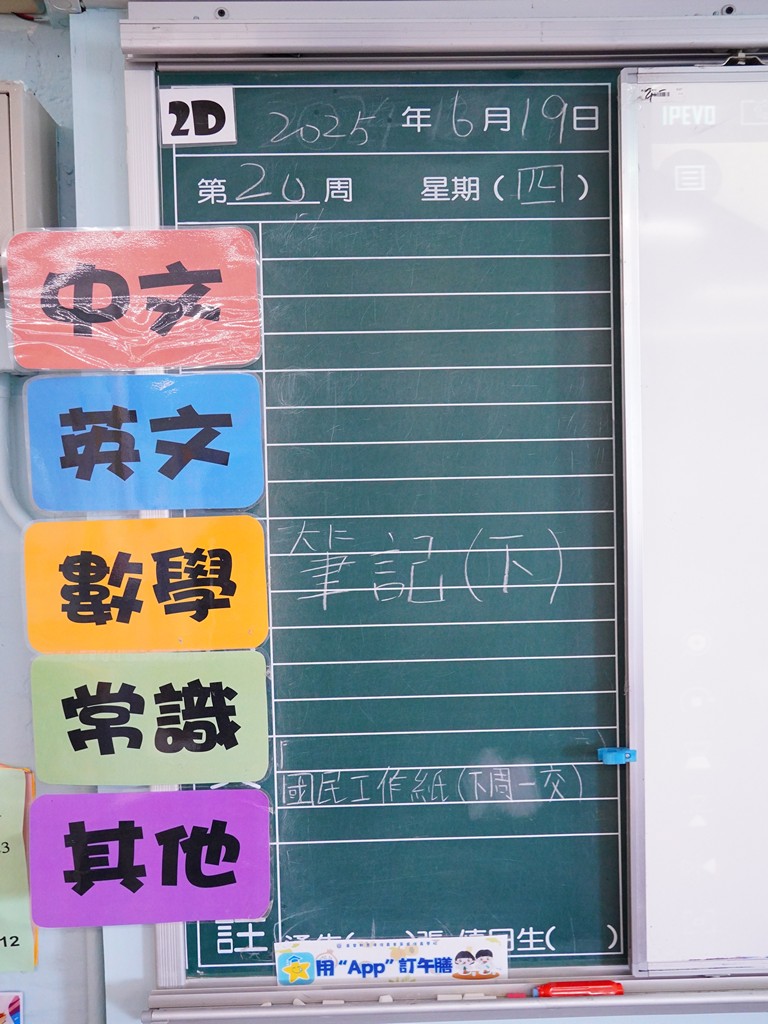 2D 2025年6月19日
第20周 星期(四)
IPEVO
中文
英文
數學 筆記(下)
常識
國民工作紙(下周一交)
其他
註 通告( )張 值日生( )
用“App”訂午膳
3
12